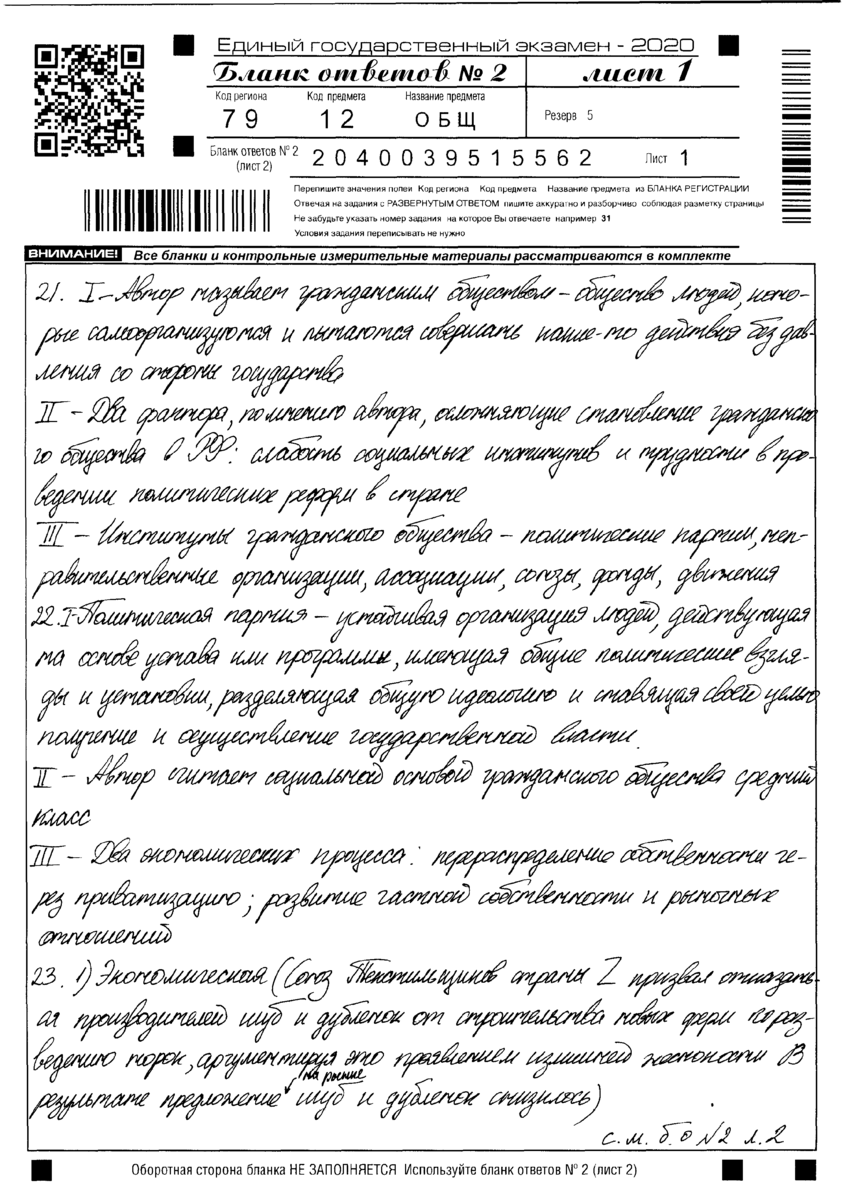 Единый государственный экзамен - 2020
Бланк ответов № 2 лист 1
Код региона Код предмета Название предмета
79 12 ОБЩ Резерв 5
Бланк ответов № 2 (лист 2) 2040039515562 Лист 1
Перепишите значения полей Код региона Код предмета Название предмета из БЛАНКА РЕГИСТРАЦИИ
Отвечая на задания с РАЗВЕРНУТЫМ ОТВЕТОМ пишите аккуратно и разборчиво соблюдая разметку страницы
Не забудьте указать номер задания на которое Вы отвечаете например 31
Условия задания переписывать не нужно
ВНИМАНИЕ! Все бланки и контрольные измерительные материалы рассматриваются в комплекте
21. I - Автор называет гражданским обществом - общество людей, кото-
рые самоорганизуются и пытаются совершать какие-то действия без дав-
ления со стороны государства
II - Два фактора, по мнению автора, осложняющие становление гражданско
го общества в РФ: слабость социальных институтов и трудности в про-
ведении политических реформ в стране
III - Институты гражданского общества - политические партии, неп-
равительственные организации, ассоциации, союзы, фонды, движения
22. I-Политическая партия - устойчивая организация людей, действующая
на основе устава или программы, имеющая общие политические взгля-
ды и установки, разделяющая общую идеологию и ставящая своей целью
получение и осуществление государственной власти.
II - Автор считает социальной основой гражданского общества средний
класс
III - Два экономических процесса: перераспределение собственности че-
рез приватизацию; развитие частной собственности и рыночных
отношений
23. 1) Экономическая (Союз Текстильщиков страны Z призвал отказать-
ся производителей шуб и дубленок от строительства новых ферм по раз-
ведению норок, аргументируя это проявлением излишней жестокости В
результате предложение на рынке шуб и дубленок снизилось)
с.м. б.о №2 л.2
Оборотная сторона бланка НЕ ЗАПОЛНЯЕТСЯ Используйте бланк ответов № 2 (лист 2)